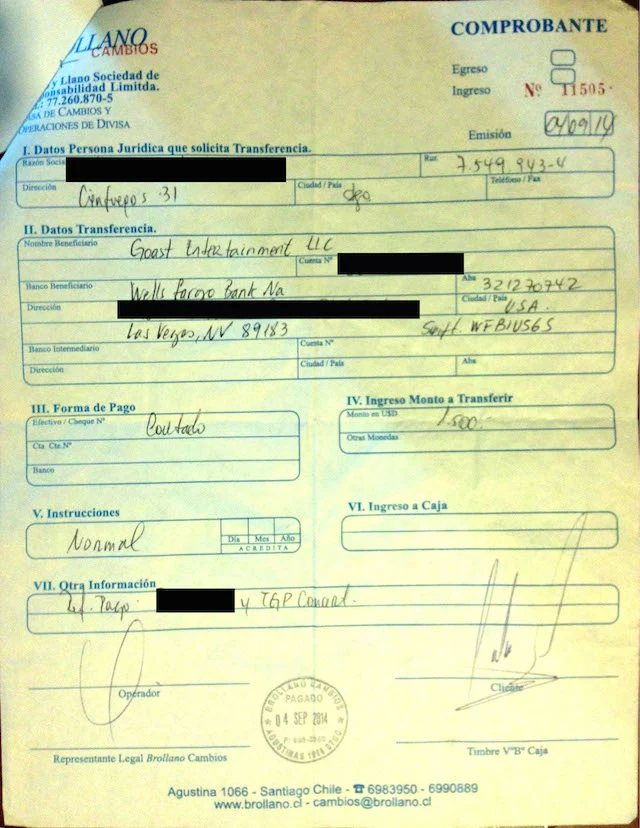 OLLANO
CAMBIOS
COMPROBANTE
y Llano Sociedad de
onsabilidad Limitda.
: 77.260.870-5
ASA DE CAMBIOS Y
OPERACIONES DE DIVISA
Egreso
Ingreso Nº 11505
Emisión 04/09/14
I. Datos Persona Jurídica que solicita Transferencia.
Razón Socia Rut. 7.549.943-4
Dirección Cienfuegos 31 Ciudad / País stgo Teléfono / Fax
II. Datos Transferencia.
Nombre Beneficiario Goast Entertainment LLC
Cuenta Nº
Banco Beneficiario Wells Fargo Bank Na Aba 321270742
Dirección Ciudad / País USA.
Las Vegas, NV 89183 Swift. WFBIUS6S
Banco Intermediario Cuenta Nº
Dirección Ciudad / País Aba
III. Forma de Pago
Efectivo / Cheque Nº Contado
Cta. Cte.Nº
Banco
IV. Ingreso Monto a Transferir
Monto en USD 1.500.-
Otras Monedas
V. Instrucciones
Normal
Día Mes Año
ACREDITA
VI. Ingreso a Caja
VII. Otra Información
Ref. Pago: y TGP Concert.
Operador
Cliente
BROLLANO CAMBIOS
PAGADO
04 SEP 2014
AGUSTINAS STGO.
Representante Legal Brollano Cambios
Timbre VºBº Caja
Agustina 1066 - Santiago Chile - ☎ 6983950 - 6990889
www.brollano.cl - cambios@brollano.cl